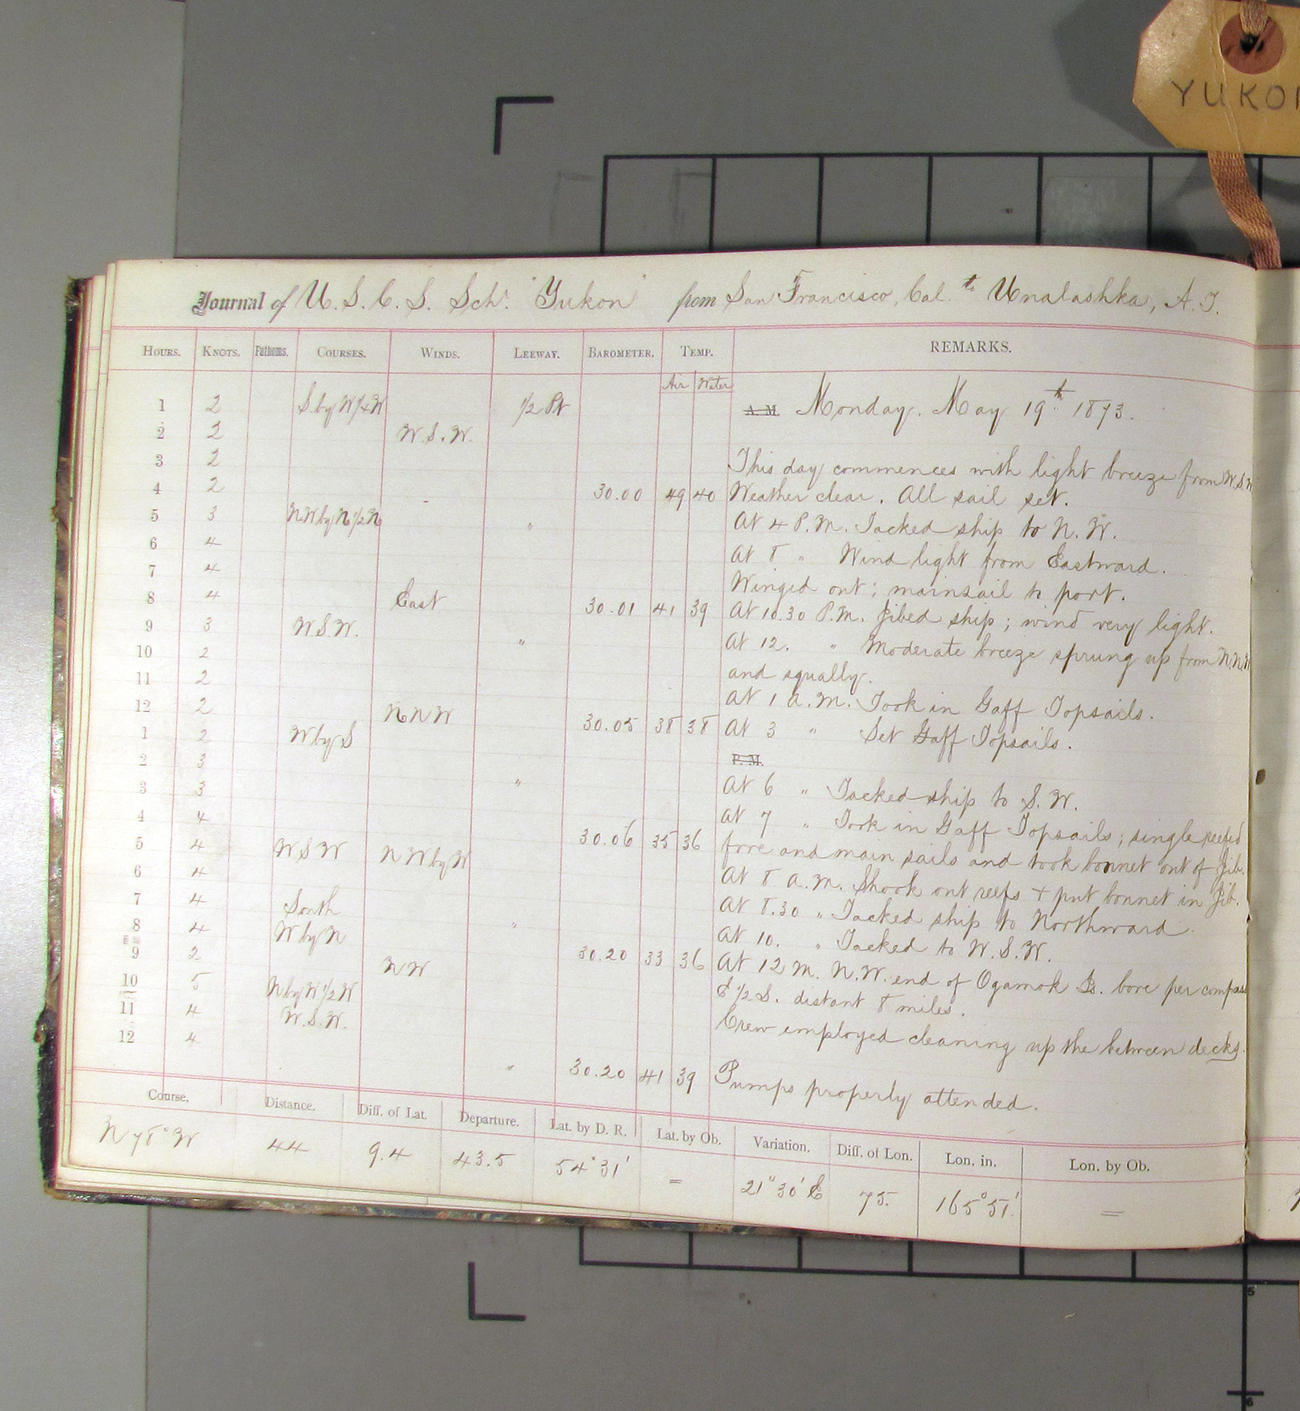 YUKO
Journal of U. S. C. S. Schr. "Yukon" from San Francisco, Cal. to Unalashka, A. T.
HOURS. KNOTS. Fathoms. COURSES. WINDS. LEEWAY. BAROMETER. TEMP. REMARKS.
Air Water
1 2 S by W 1/4 W 1/2 Pt A. M. Monday. May 19th 1873.
2 2 W. S. W.
3 2 This day commences with light breeze from W.S.W
4 2 30.00 49 40 Weather clear. All sail set.
5 3 N W by N 1/2 N " At 4 P.M. Tacked ship to N. W.
6 4 At 8 " Wind light from Eastward.
7 4 Winged out; mainsail to port.
8 4 East 30.01 41 39 At 10.30 P.M. Jibed ship; wind very light.
9 3 W S W. " At 12. " Moderate breeze sprung up from N.N.W
10 2 and squally.
11 2 At 1 A.M. Took in Gaff Topsails.
12 2 N N W 30.05 38 38 At 3 " Set Gaff Topsails.
1 2 W by S P. M.
2 3 At 6 " Tacked ship to S. W.
3 3 " At 7 " Took in Gaff Topsails; single reefed
4 4 30.06 35 36 fore and main sails and took bonnet out of Jib.
5 4 W S W N W by W At 8 A.M. Shook out reefs + put bonnet in Jib.
6 4 At 8.30 " Tacked ship to Northward.
7 4 South At 10. " Tacked to W. S. W.
8 4 W by N " 30.20 33 36 At 12 M. N. W. end of Ogamok Is. bore per compass
9 2 N W E 1/2 S. distant 8 miles.
10 5 N by W 1/2 W Crew employed cleaning up the between decks.
11 4 W. S. W.
12 4 " 30.20 41 39 Pumps properly attended.
Course. Distance. Diff. of Lat. Departure. Lat. by D. R. Lat. by Ob. Variation. Diff. of Lon. Lon. in. Lon. by Ob.
N 78° W 44 9.4 43.5 54° 31' = 21° 30' E 75. 165° 51' =
5
6